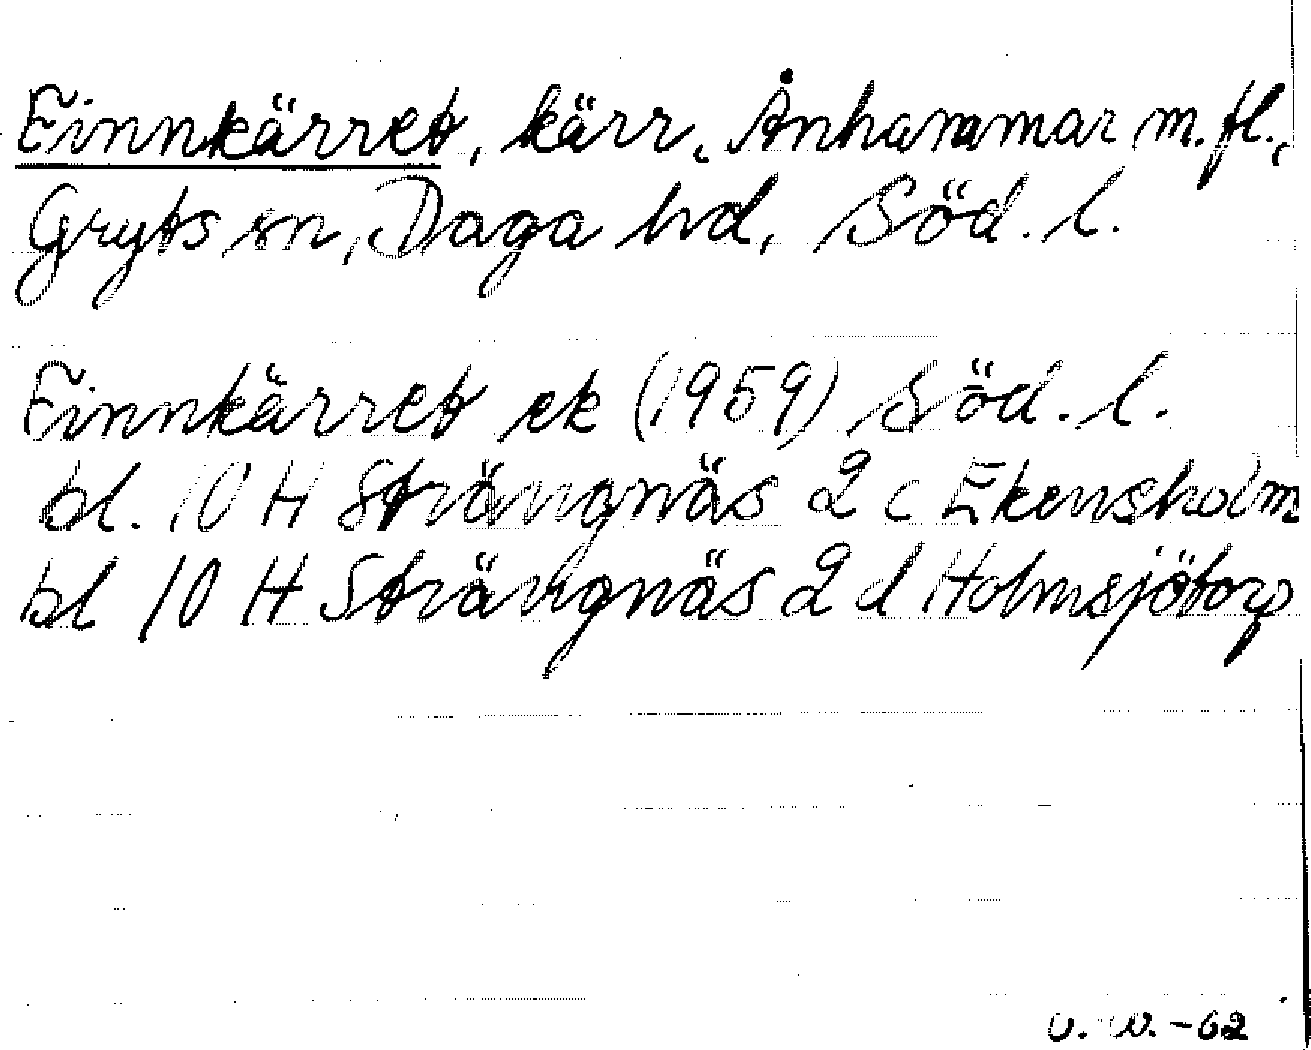 Finnkärret, kärr, Ånhammar m.fl.,
Gryts sn, Daga hd, Söd. l.
Finnkärret ek (1959) Söd. l.
bl. 10 H Strängnäs 2 c Ekensholm
bl 10 H Strängnäs 2 d Holmsjötorp
U. W. -62